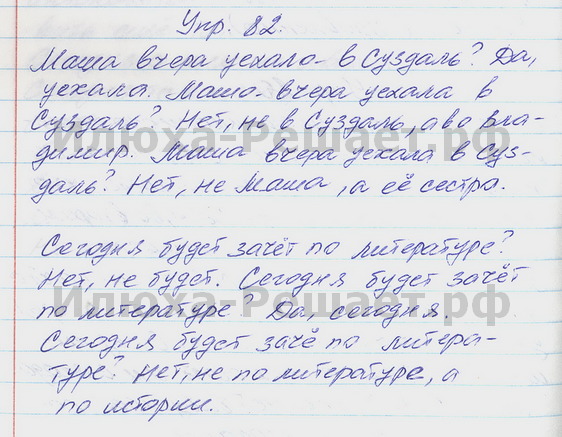 Упр. 82.
Маша вчера уехала в Суздаль? Да,
уехала. Маша вчера уехала в
Суздаль? Нет, не в Суздаль, а во Вла-
димир. Маша вчера уехала в Суз-
даль? Нет, не Маша, а её сестра.
Илюха-Решает.рф
Сегодня будет зачёт по литературе?
Нет, не будет. Сегодня будет зачёт
по литературе? Да, сегодня.
Илюха-Решает.рф
Сегодня будет зачё по литера-
туре? Нет, не по литературе, а
по истории.